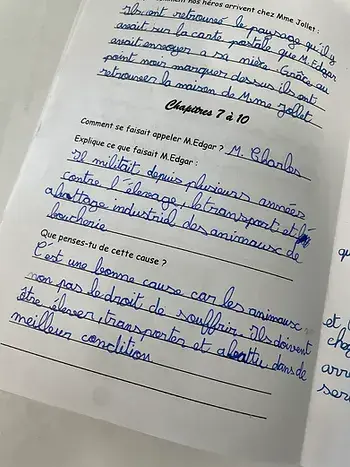 nos héros arrivent chez Mme Jollet :
Ils ont retrouvé le paysage qu'il y
avait sur la carte postale que M. Edgar
avait envoyer a sa nièce. Grâce au
point noir marquer dessus ils ont
retrouver la maison de Mme Jollet
Chapitres 7 à 10
Comment se faisait appeler M.Edgar ? M. Charles
Explique ce que faisait M.Edgar :
Il militait depuis plusieurs années
contre l'élevage, le transport et l'
abattage industriel des animaux de
boucherie
Que penses-tu de cette cause ?
C'est une bonne cause car les animaux
non pas le droit de souffrir. Ils doivent
être élever, transporter et abattu dans de
meilleur condition
qu
et
che
arri
ser